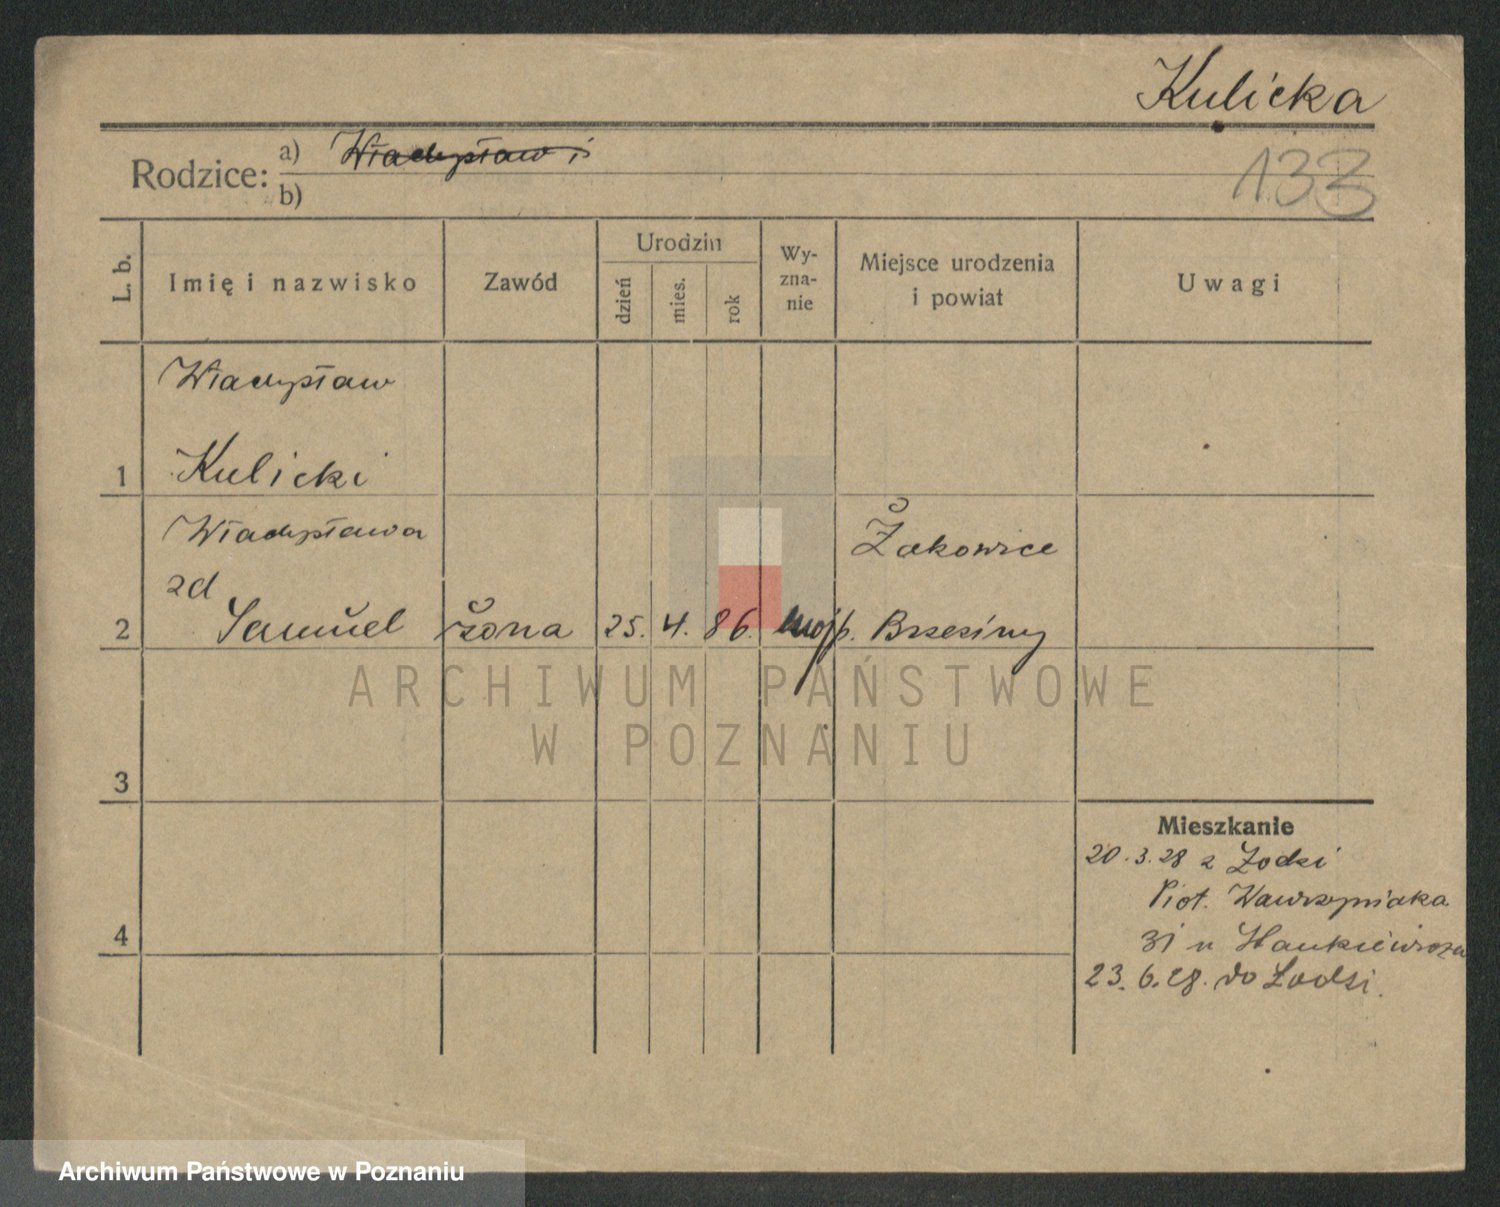 Kulicka
133
Rodzice: a) Władysław i
b)
L. b.
Imię i nazwisko
Zawód
Urodzin
dzień
mies.
rok
Wy-
zna-
nie
Miejsce urodzenia
i powiat
Uwagi
Władysław
1 Kulicki
Władysława
zd
Żakowice
2 Samuel żona 25. 4. 86. mojż. Brzeziny
3
4
Mieszkanie
20.3.28 z Łodzi
Piot. Wawrzyniaka
31 u
23.6.28. do Łodzi.
ARCHIWUM PAŃSTWOWE
W POZNANIU
Archiwum Państwowe w Poznaniu